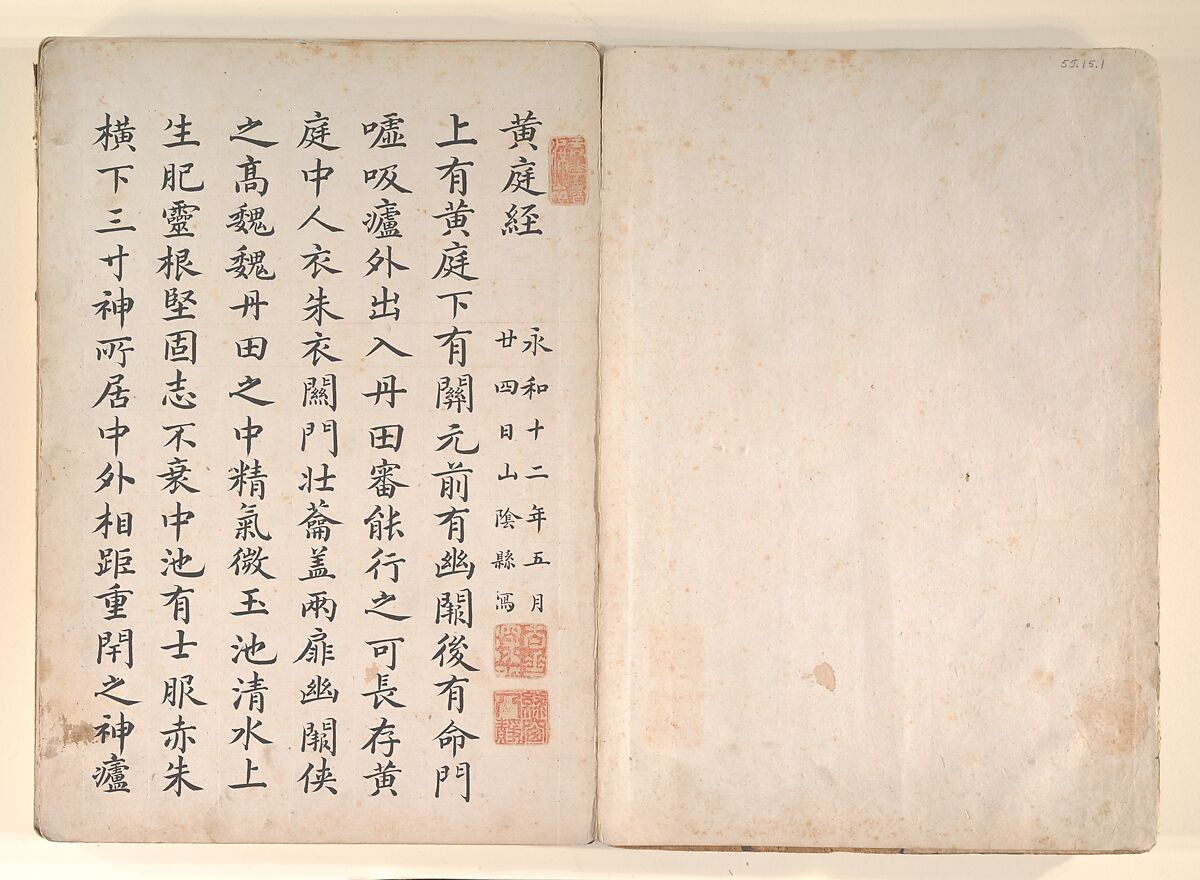 55.15.1
黄庭経
永和十二年五月
廿四日山陰縣寫
上有黄庭下有關元前有幽闕後有命門
噓吸廬外出入丹田審能行之可長存黄
庭中人衣朱衣關門壯蘥盖兩扉幽闕侠
之高魏魏丹田之中精氣微玉池清水上
生肥靈根堅固志不衰中池有士服赤朱
横下三寸神所居中外相距重閇之神廬